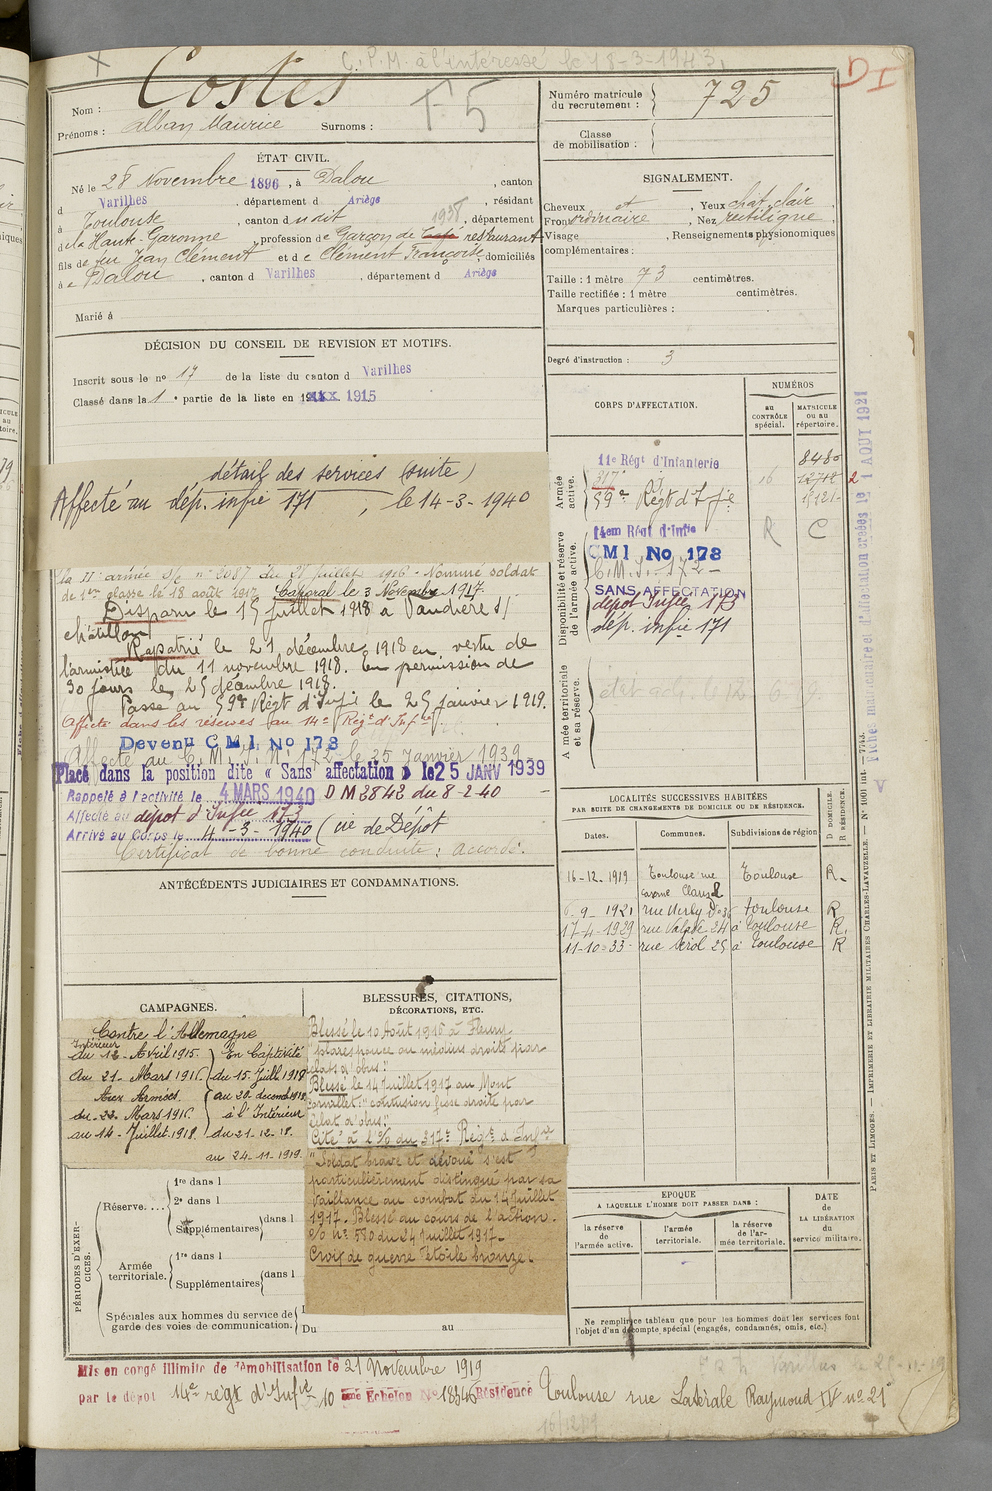 C.P.M. à l'intéressé le 18-3-1943
DI
Nom : Costes
Prénoms : Alban Maurice Surnoms :
F5
Numéro matricule
du recrutement : 725
Classe
de mobilisation :
ÉTAT CIVIL.
Né le 28 Novembre 1896, à Dalou, canton
d Varilhes, département d Ariège, résidant
à Toulouse, canton dudit 1938, département
de la Haute-Garonne, profession de Garçon de Café restaurant
fils de feu Jean Clément et de Clément Françoise, domiciliés
à Dalou, canton d Varilhes, département d Ariège
Marié à
SIGNALEMENT.
Cheveux et, Yeux chât. clair,
Front ordinaire, Nez rectiligne,
Visage, Renseignements physionomiques
complémentaires :
Taille : 1 mètre 73 centimètres.
Taille rectifiée : 1 mètre centimètres.
Marques particulières :
Degré d'instruction : 3
DÉCISION DU CONSEIL DE REVISION ET MOTIFS.
Inscrit sous le no 17 de la liste du canton d Varilhes
Classé dans la 1e partie de la liste en 1915
détail des services (suite)
Affecté au dép. infie 171, le 14-3-1940
la IIe armée S/C n° 2087 du 21 juillet 1916 - Nommé soldat
de 1ère classe le 18 août 1917. Caporal le 3 Novembre 1917.
Disparu le 15 juillet 1918 à Vandières s/
châtillon
Rapatrié le 21 décembre 1918 en vertu de
l'armistice du 11 novembre 1918. En permission de
30 jours le 25 décembre 1918.
Passé au 59e Régt d'Infie le 25 janvier 1919.
Affecté dans les réserves au 14e Régt d'Infie
Devenu CMI No 178
Affecté au C.M.I. N° 172 le 25 Janvier 1939
Placé dans la position dite « Sans affectation » le 25 JANV 1939
Rappelé à l'activité le 4 MARS 1940 DM 2842 du 8-2-40
Affecté au depot d'Infie 173
Arrivé au Corps le 4-3-1940 (cie de Dépôt
Certificat de bonne conduite : Accordé.
CORPS D'AFFECTATION.
NUMÉROS
au
CONTRÔLE
spécial.
MATRICULE
ou au
répertoire.
Armée
active.
11e Régt d'Infanterie 8480
317e 16 12712 2
59e Régt d'Infie
Disponibilité et réserve
de l'armée active.
14em Régt d'Infie R C
CMI No 178
C.M.I. 172
SANS AFFECTATION
depot Infie 173
dép. infie 171
Armée territoriale
et sa réserve.
Fiches matriculaire et d'affectation créées le 1 AOUT 1921
LOCALITÉS SUCCESSIVES HABITÉES
PAR SUITE DE CHANGEMENTS DE DOMICILE OU DE RÉSIDENCE.
Dates. Communes. Subdivisions de région
D DOMICILE.
R RÉSIDENCE.
16-12-1919 Toulouse rue Toulouse R.
6-9-1921 Toulouse R
17-4-1929 rue Valade 24 à Toulouse R.
11-10-33 rue Mérol 25 à Toulouse R
ANTÉCÉDENTS JUDICIAIRES ET CONDAMNATIONS.
CAMPAGNES.
Contre l'Allemagne
Intérieur
du 12 Avril 1915.
au 21 Mars 1916.
Aux Armées.
du 22 Mars 1916.
au 14 Juillet 1918.
En Captivité
du 15 Juill. 1918
au 20 decemb 1918
à l'Intérieur
du 21-12-18.
au 24-11-1919.
BLESSURES, CITATIONS,
DÉCORATIONS, ETC.
Blessé le 10 Août 1916 à Fleury
pouce ou médius droits par
éclats d'obus."
Blessé le 14 Juillet 1917 au Mont
Cornillet "contusion fesse droite par
éclat d'obus".
Cité à l'O/ du 317e Régt d'Infie
"Soldat brave et dévoué s'est
particulièrement distingué par sa
vaillance au combat du 14 Juillet
1917. Blessé au cours de l'action.
O/ n° 580 du 24 juillet 1917.
Croix de guerre étoile bronze.
PÉRIODES D'EXERCICES.
Réserve....
1re dans l
2e dans l
Supplémentaires dans l
Armée
territoriale.
1re dans l
Supplémentaires dans l
Spéciales aux hommes du service de
garde des voies de communication.
Du au
EPOQUE
A LAQUELLE L'HOMME DOIT PASSER DANS :
la réserve
de l'armée active.
l'armée
territoriale.
la réserve
de l'ar-
mée territoriale.
DATE
de
LA LIBÉRATION
du
service militaire.
Ne remplir ce tableau que pour les hommes dont les services font
l'objet d'un décompte spécial (engagés, condamnés, omis, etc.)
PARIS ET LIMOGES. — IMPRIMERIE ET LIBRAIRIE MILITAIRES CHARLES-LAVAUZELLE. — N° 1001 int. — 7743.
Mis en congé illimité de démobilisation le 21 Novembre 1919
par le dépôt 14e régt d'Infie 10ème Echelon No 18346 Résidence Toulouse rue Latérale Raymond IV n° 21
16/12/19